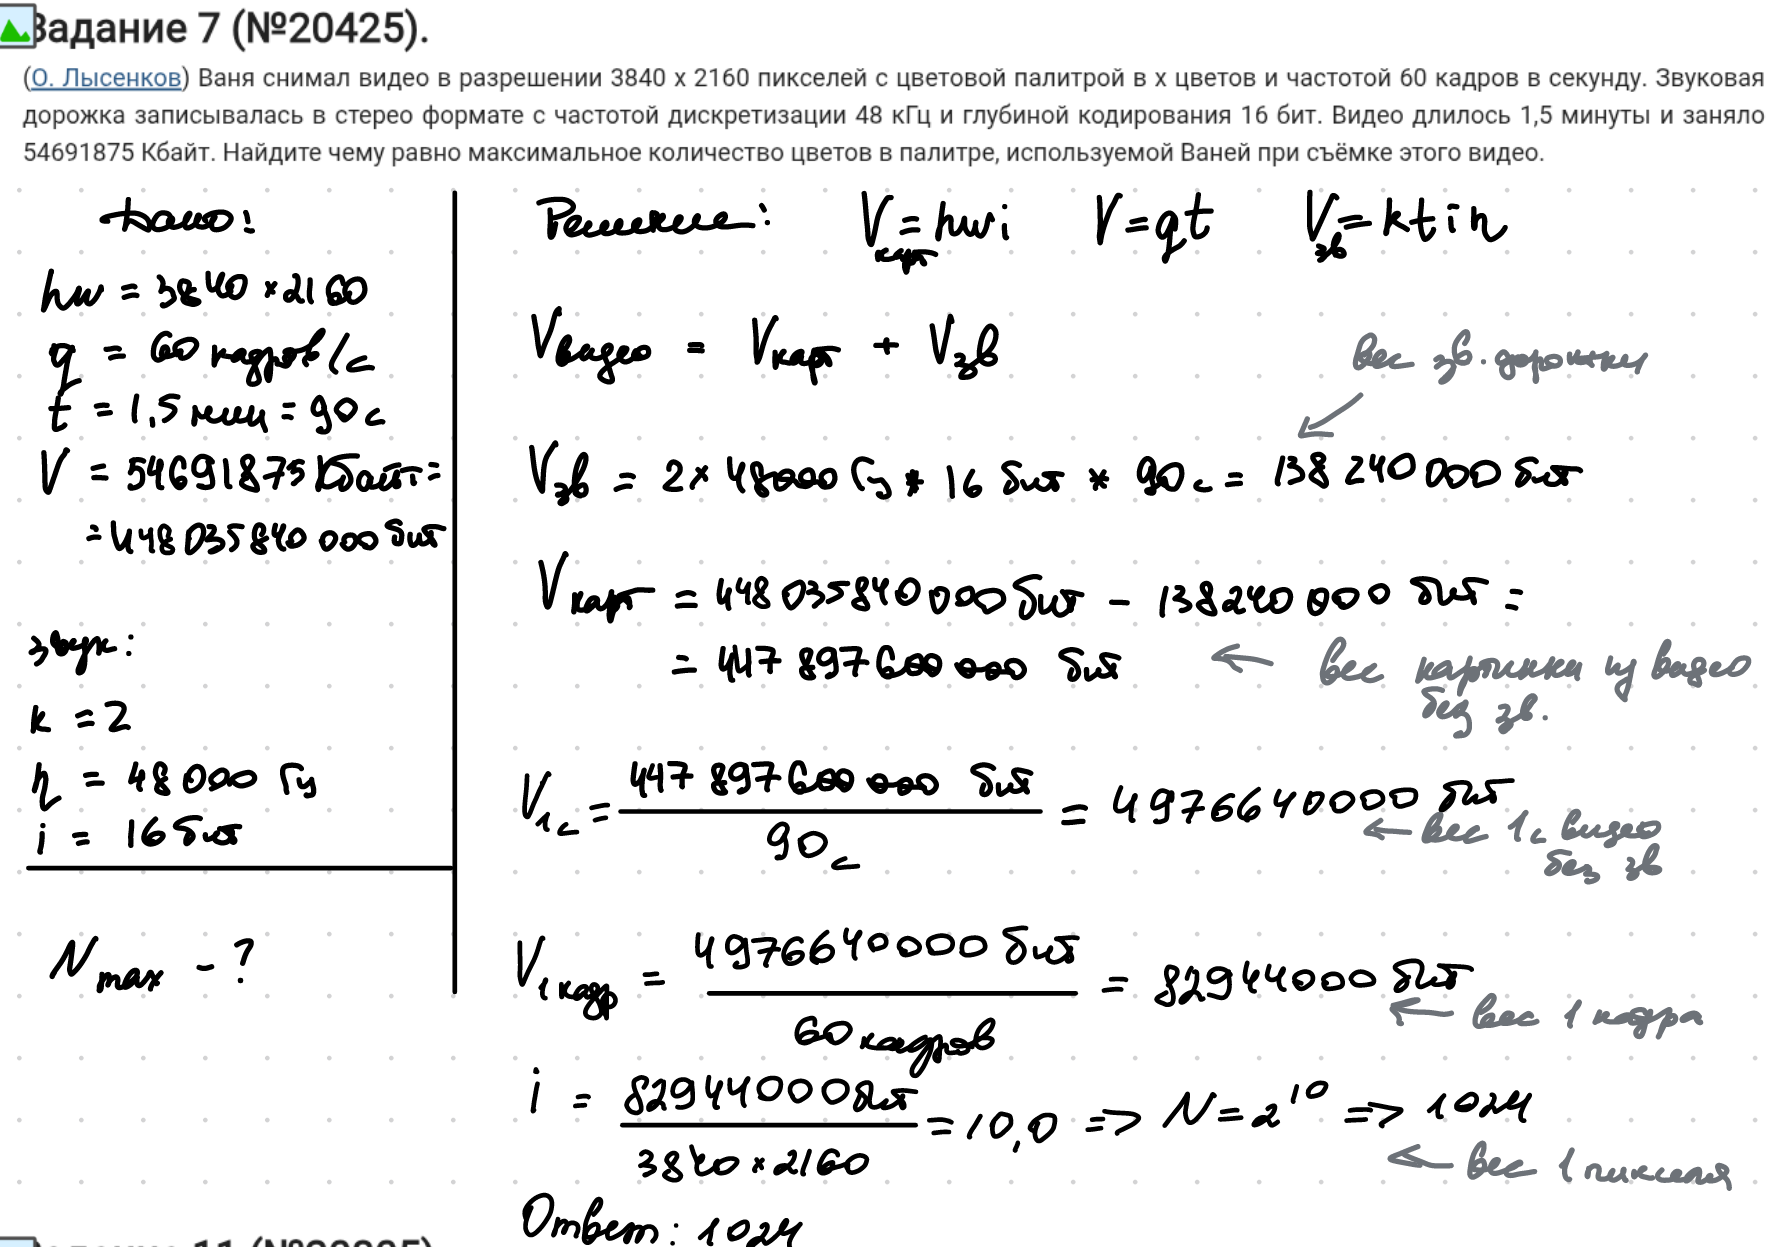 Задание 7 (№20425).
(О. Лысенков) Ваня снимал видео в разрешении 3840 x 2160 пикселей с цветовой палитрой в x цветов и частотой 60 кадров в секунду. Звуковая
дорожка записывалась в стерео формате с частотой дискретизации 48 кГц и глубиной кодирования 16 бит. Видео длилось 1,5 минуты и заняло
54691875 Кбайт. Найдите чему равно максимальное количество цветов в палитре, используемой Ваней при съёмке этого видео.
Дано:
hw = 3840 × 2160
q = 60 кадров/с
t = 1,5 мин = 90 с
V = 54691875 Кбайт =
= 448 035 840 000 бит
звук:
k = 2
η = 48 000 Гц
i = 16 бит
N max - ?
Решение: V карт = hwi V = qt V зв = ktiη
V видео = V карт + V зв
вес зв. дорожки
V зв = 2 × 48000 Гц * 16 бит * 90 с = 138 240 000 бит
V карт = 448 035 840 000 бит - 138 240 000 бит =
= 447 897 600 000 бит ← вес картинки из видео
без зв.
V 1с = 447 897 600 000 бит / 90 с = 4976640000 бит
← вес 1с видео
без зв
V 1 кадр = 4976640000 бит / 60 кадров = 82944000 бит
← вес 1 кадра
i = 82944000 бит / 3840 × 2160 = 10,0 => N = 2^10 => 1024
← вес 1 пикселя
Ответ: 1024